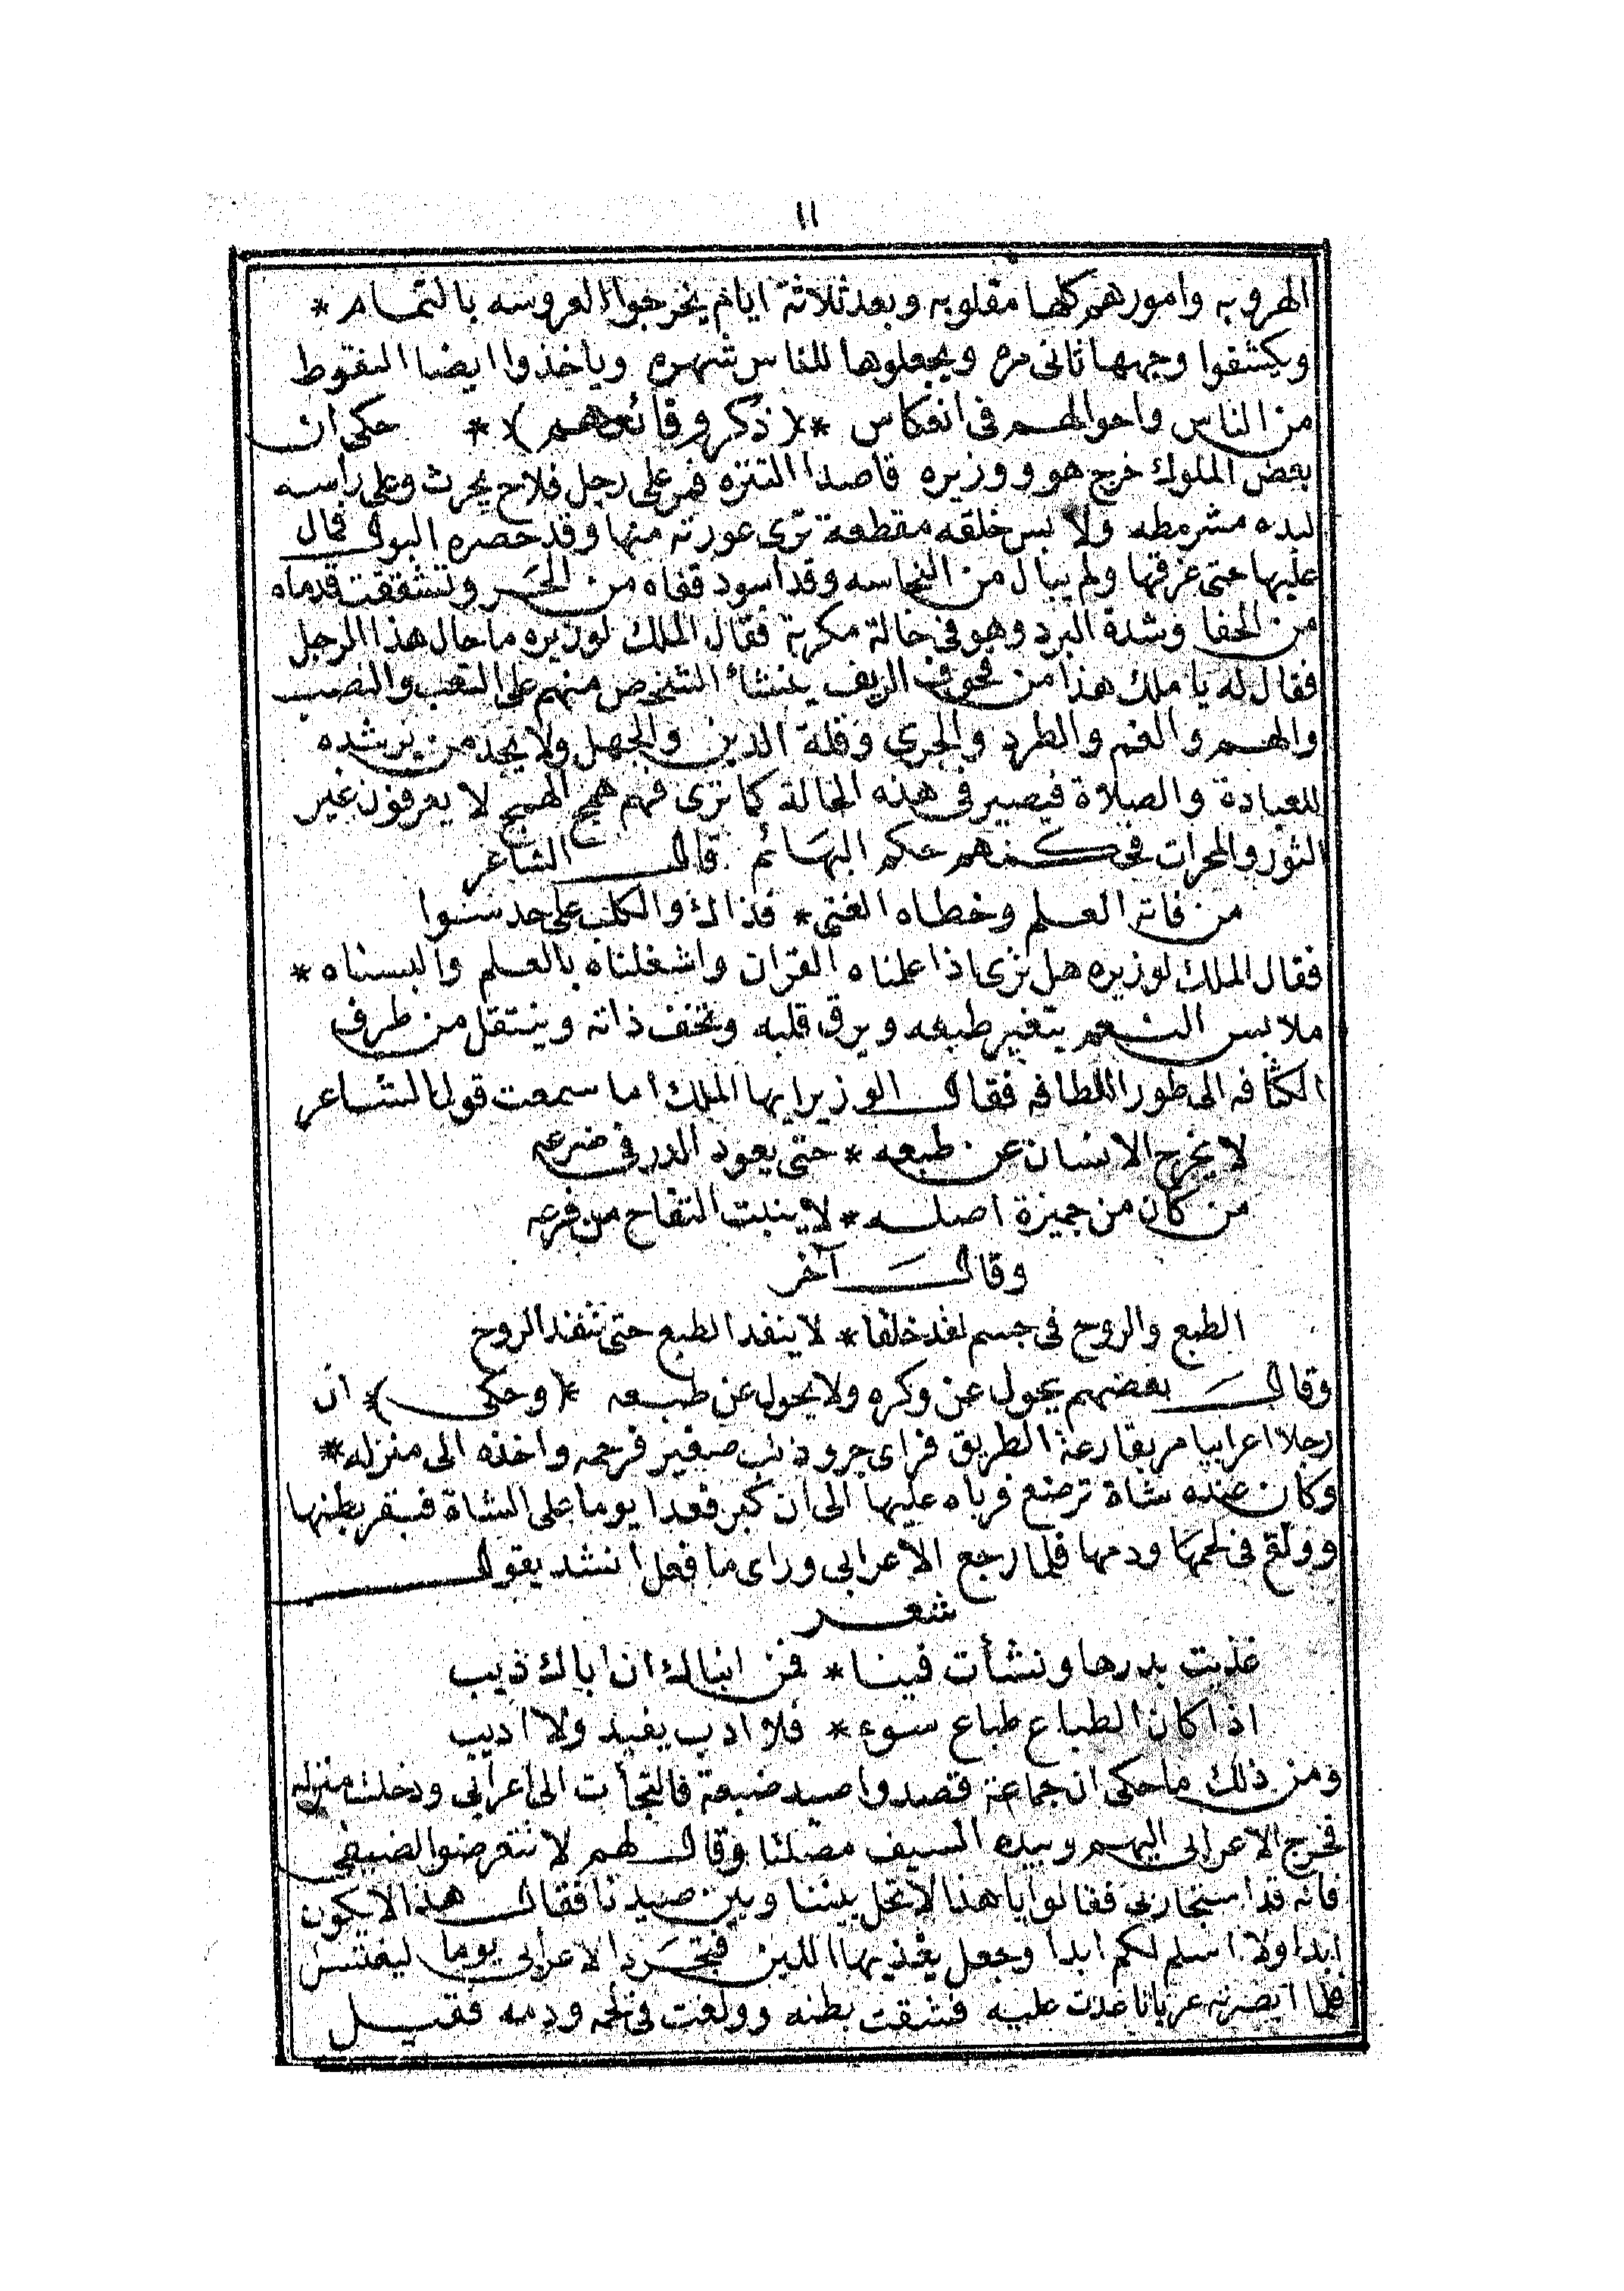 ١١
الهروبه وامورهم كلها مقلوبه وبعد ثلاثة ايام يخرجوا العروسه بالتمام *
ويكشفوا وجهها ثانى مره ويجعلوها للناس شهره وياخذوا ايضا النقوط
من الناس واحوالهم فى انعكاس *( ذكر وقائعهم )* حكى ان
بعض الملوك خرج هو ووزيره قاصدا التنزه فمر على رجل فلاح يحرث وعلى رأسه
لبده مشرمطه ولابس خلقه مقطعة ترى عورته منها وقد حصره البول فمال
عليها حتى غرقها ولم يبال من النجاسه وقد اسود قفاه من الحَر وتشققت قدماه
من الحفا وشدة البرد وهو فى حالة مكربة فقال الملك لوزيره ما حال هذا الرجل
فقال له يا ملك هذا من قحوف الريف ينشأ الشخص منهم على التعب والنصب
والهم والغم والطرد والجرى وقلة الدين والجهل ولا يجد من يرشده
للعبادة والصلاة فيصير فى هذه الحالة كما ترى فهم همج الهمج لا يعرفون غير
الثور والمحرات فحكمهم حكم البهَائم قال الشاعر
من فاته العلم وخطاه الغنى * فذاك والكلب على حد سوا
فقال الملك لوزيره هل ترى اذا علمناه القران واشغلناه بالعلم والبسناه *
ملابس النعم يتغير طبعه ويرق قلبه وتخف ذاته وينتقل من طرف
الكثافه الى طور اللطافه فقال الوزير ايها الملك اما سمعت قول الشاعر
لا يخرج الانسان عن طبعه * حتى يعود الدر فى ضرعه
من كان من جميزة اصله * لا ينبت التفاح من فرعه
وقالَ آخر
الطبع والروح فى جسم لقد خلقا * لا ينفد الطبع حتى تنفد الروح
وقالَ بعضهم يحول عن وكره ولا يحول عن طبعه *( وحكى )* ان
رجلا اعرابيا مر بقارعة الطريق فراى جرو ذئب صغير فرحمه واخذه الى منزله *
وكان عنده شاة ترضع فرباه عليها الى ان كبر فعدا يوما على الشاة فبقر بطنها
وولغ فى لحمهَا ودمها فلما رجع الاعرابى وراى ما فعل انشد يقول
شعر
غذيت بدرها ونشأت فينا * فمن انباك ان اباك ذيب
اذا كان الطباع طباع سوء * فلا ادب يفيد ولا اديب
ومن ذلك ما حكى ان جماعة قصدوا صيد ضبعة فالتجأت الى اعرابى ودخلت منزله
فخرج الاعرابى اليهم وبيده السيف مصلتا وقال لهم لا تتعرضوا لضيفى
فانه قد استجار بى فقالوا يا هذا لا تحل بيننا وبين صيدنا فقال هذا لا يكون
ابدا ولا اسلم لكم ابدا وجعل يغذيها اللبن فتجَرد الاعرابى يوما ليغتسل
فلما ابصرته عريانا غدت عليه فشقت بطنه وولغت فى لحمه ودمه فقيل